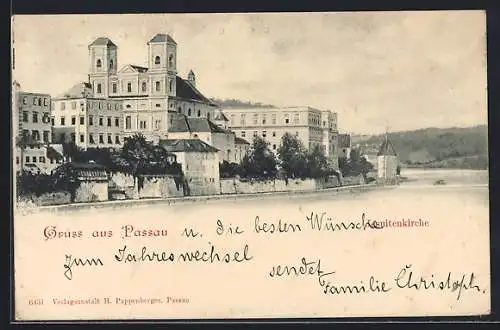 Gruss aus Passau u. die besten Wünsche Jesuitenkirche
zum Jahreswechsel
sendet
Familie Christoph.
6431 Verlagsanstalt H. Pappenberger, Passau